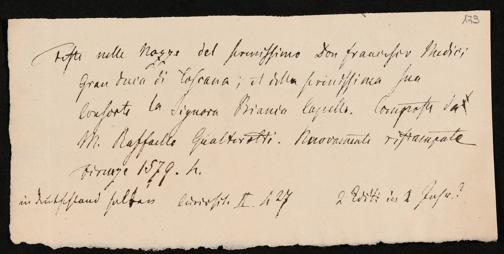 173
Feste nelle Nozze del serenissimo Don Francesco Medici
Gran Duca di Toscana; et della serenissima sua
Consorte la Signora Bianca Capello. Composte da
M. Raffaello Gualterotti. Nuovamente ristampate
Firenze 1579. 4.
in Deutschland selten II. 427 2 Editi in 1 Jahr?